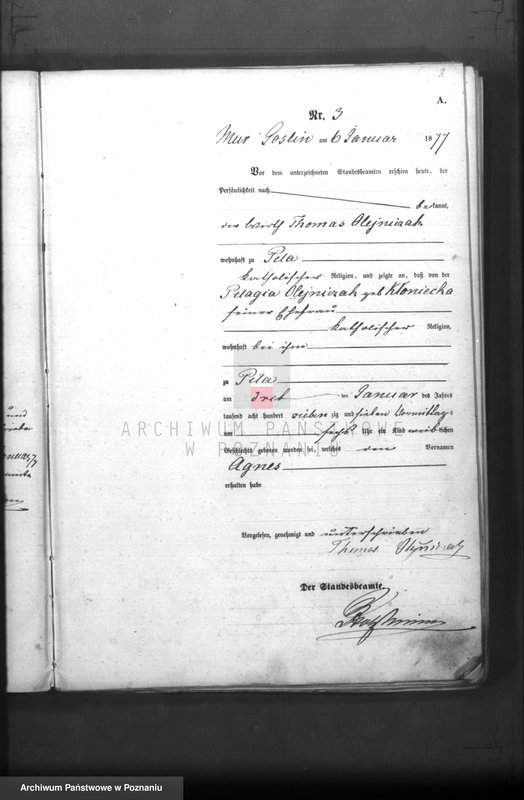 3.
A.
Nr. 3
Mur Goslin am 6 Januar 1877
Vor dem unterzeichneten Standesbeamten erschien heute, der
Persönlichkeit nach
bekannt,
der Wirth Thomas Olejniczak
wohnhaft zu Pila
katholischer Religion, und zeigte an, daß von der
Pelagia Olejniczak geb Kłoniecka
seiner Ehefrau
katholischer Religion,
wohnhaft bei ihm
zu Pila
am drei ten Januar des Jahres
tausend acht hundert sieben zig und sieben Vormittags
um sechs Uhr ein Kind weiblichen
Geschlechts geboren worden sei, welches den Vornamen
Agnes
erhalten habe
Vorgelesen, genehmigt und unterschrieben
Thomas Olejniczak
Der Standesbeamte.
ARCHIWUM PAŃSTWOWE
W POZNANIU
Archiwum Państwowe w Poznaniu